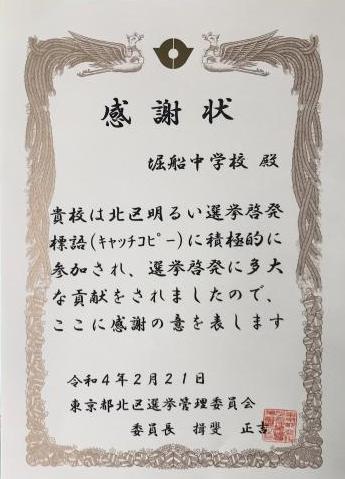 感謝状
堀船中学校 殿
貴校は北区明るい選挙啓発
標語(キャッチコピー)に積極的に
参加され、選挙啓発に多大
な貢献をされましたので、
ここに感謝の意を表します
令和4年2月21日
東京都北区選挙管理委員会
委員長 揖斐 正吉